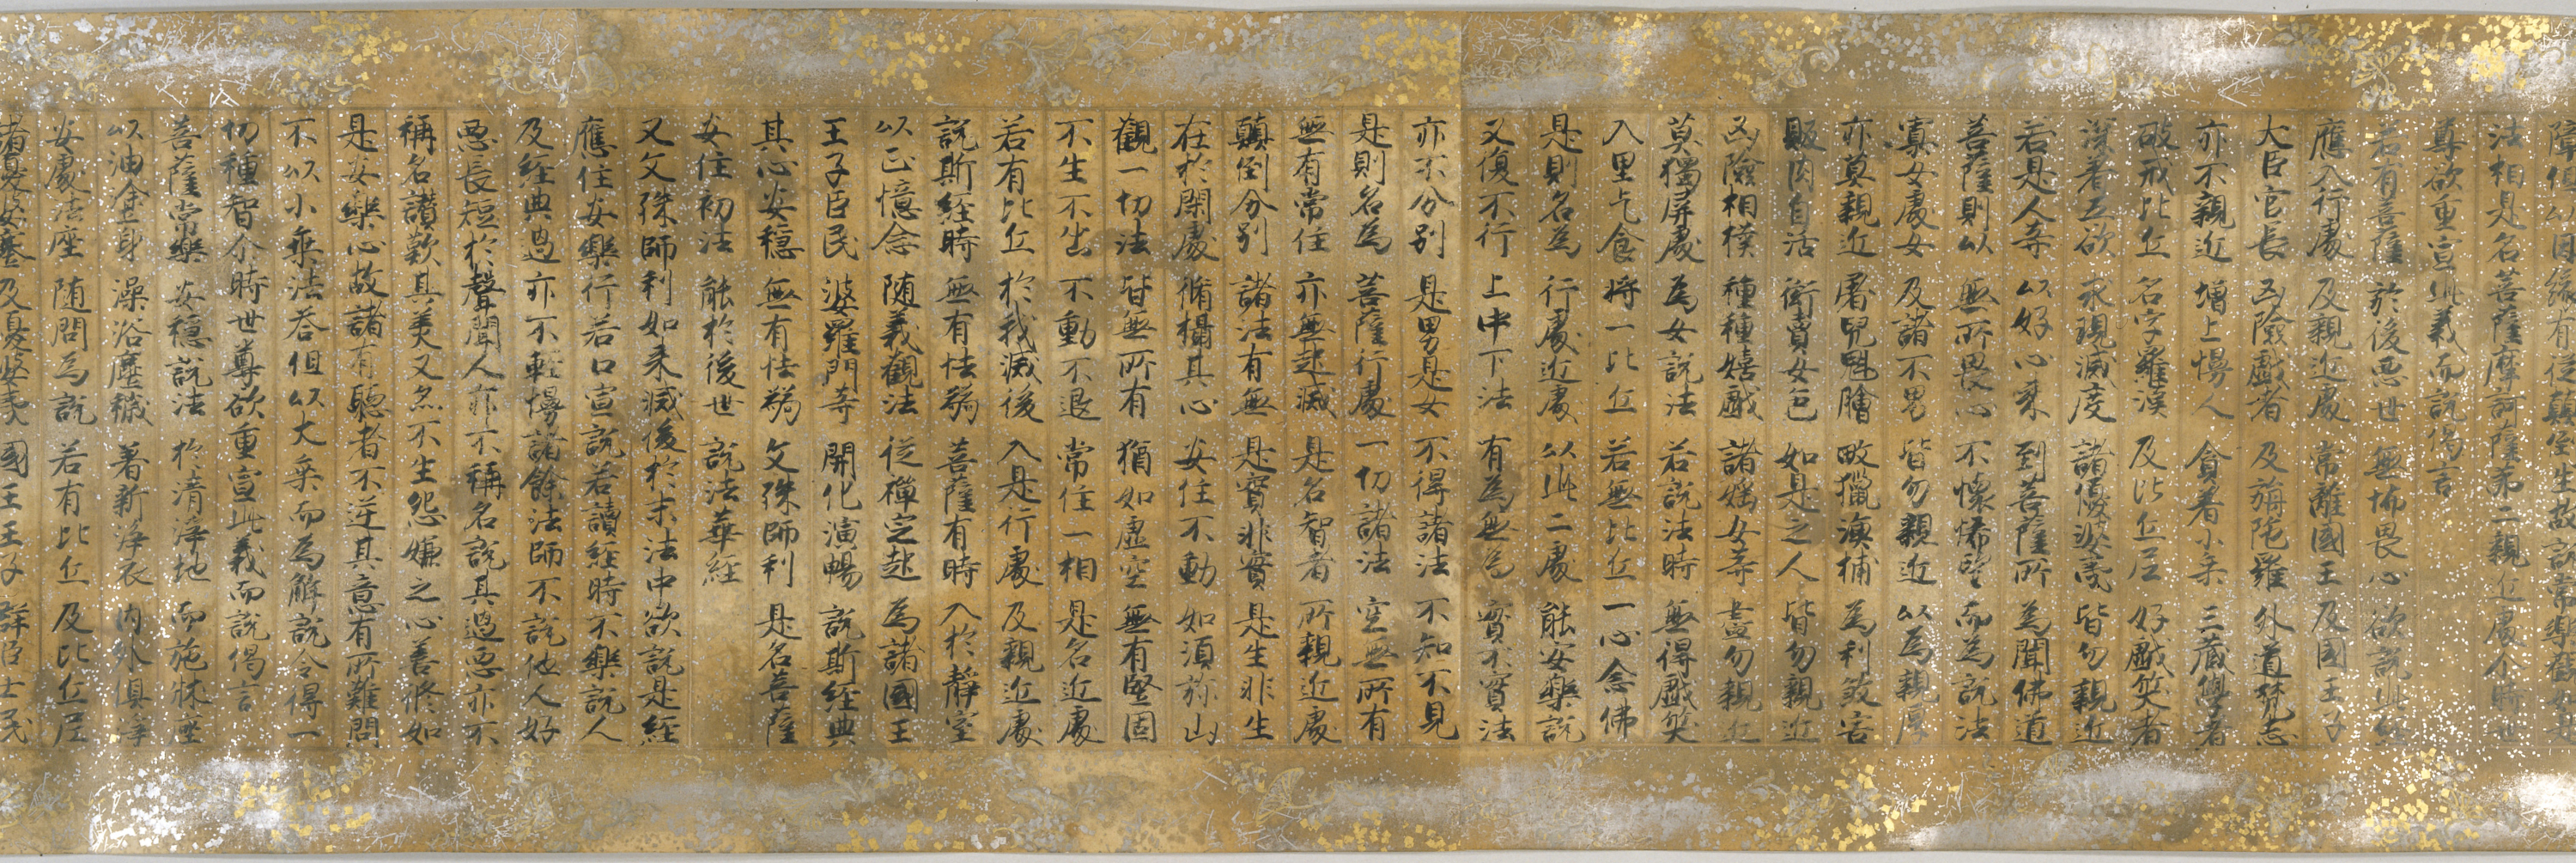 障但以因緣有從顛倒生故說常樂觀如是
法相是名菩薩摩訶薩第二親近處尒時世
尊欲重宣此義而說偈言
若有菩薩 於後惡世 無怖畏心 欲說此經
應入行處 及親近處 常離國王 及國王子
大臣官長 凶險戲者 及旃陀羅 外道梵志
亦不親近 增上慢人 貪著小乘 三藏學者
破戒比丘 名字羅漢 及比丘尼 好戲笑者
深著五欲 求現滅度 諸優婆夷 皆勿親近
若是人等 以好心來 到菩薩所 為聞佛道
菩薩則以 無所畏心 不懷悕望 而為說法
寡女處女 及諸不男 皆勿親近 以為親厚
亦莫親近 屠兒魁膾 畋獵漁捕 為利殺害
販肉自活 衒賣女色 如是之人 皆勿親近
凶險相撲 種種嬉戲 諸婬女等 盡勿親近
莫獨屏處 為女說法 若說法時 無得戲笑
入里乞食 將一比丘 若無比丘 一心念佛
是則名為 行處近處 以此二處 能安樂說
又復不行 上中下法 有為無為 實不實法
亦不分別 是男是女 不得諸法 不知不見
是則名為 菩薩行處 一切諸法 空無所有
無有常住 亦無起滅 是名智者 所親近處
顛倒分別 諸法有無 是實非實 是生非生
在於閑處 脩攝其心 安住不動 如須弥山
觀一切法 皆無所有 猶如虛空 無有堅固
不生不出 不動不退 常住一相 是名近處
若有比丘 於我滅後 入是行處 及親近處
說斯經時 無有怯弱 菩薩有時 入於靜室
以正憶念 隨義觀法 從禪定起 為諸國王
王子臣民 婆羅門等 開化演暢 說斯經典
其心安穩 無有怯弱 文殊師利 是名菩薩
安住初法 能於後世 說法華經
又文殊師利如來滅後於末法中欲說是經
應住安樂行若口宣說若讀經時不樂說人
及經典過亦不輕慢諸餘法師不說他人好
惡長短於聲聞人亦不稱名說其過惡亦不
稱名讚歎其美又亦不生怨嫌之心善脩如
是安樂心故諸有聽者不逆其意有所難問
不以小乘法荅但以大乘而為解說令得一
切種智尒時世尊欲重宣此義而說偈言
菩薩常樂 安穩說法 於清淨地 而施牀座
以油塗身 澡浴塵穢 著新淨衣 內外俱淨
安處法座 隨問為說 若有比丘 及比丘尼
諸優婆塞 及優婆夷 國王王子 群臣士民